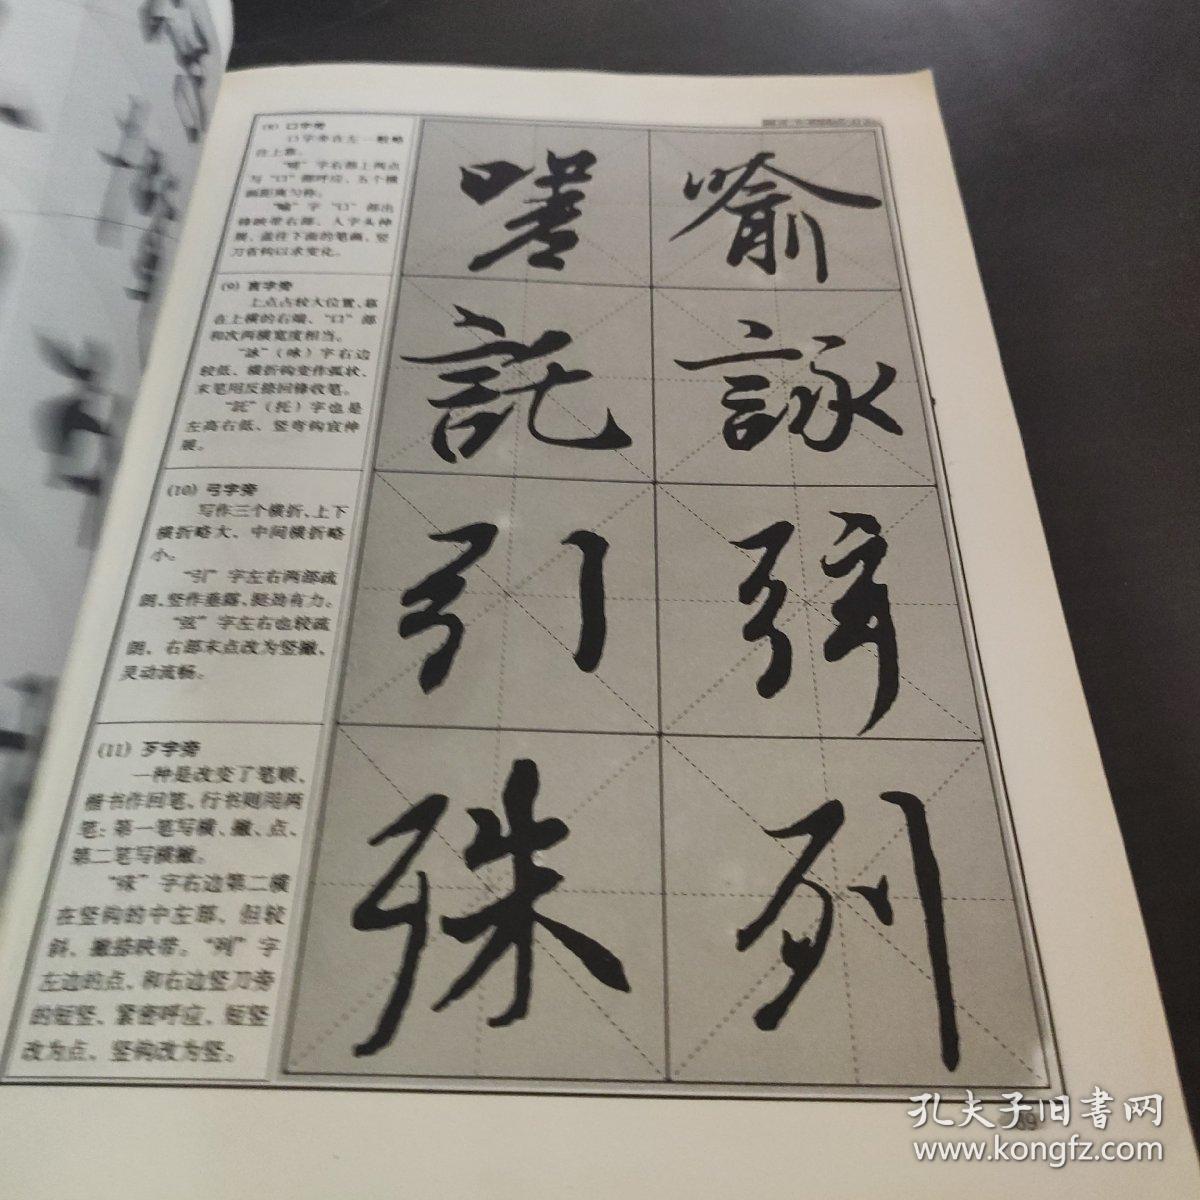 (8) 口字旁
口字旁在左一般略
往上靠。
"嗟"字右部上两点
与"口"部呼应、五个横
画距离匀称。
"喻"字"口"部出
锋映带右部、人字头伸
展、盖住下面的笔画、竖
刀省钩以求变化。
(9) 言字旁
上点占较大位置、靠
在上横的右端、"口"部
和次两横宽度相当。
"詠"(咏)字右边
较低、横折钩变作弧状、
末笔用反捺回锋收笔。
"託"(托)字也是
左高右低、竖弯钩宜伸
展。
(10) 弓字旁
写作三个横折、上下
横折略大、中间横折略
小。
"引"字左右两部疏
朗、竖作垂露、挺劲有力。
"弦"字左右也较疏
朗、右部末点改为竖撇、
灵动流畅。
(11) 歹字旁
一种是改变了笔顺、
楷书作四笔、行书则用两
笔:第一笔写横、撇、点、
第二笔写横撇。
"殊"字右边第二横
在竖钩的中左部、但较
斜、撇捺映带。"列"字
左边的点、和右边竖刀旁
的短竖、紧密呼应、短竖
改为点、竖钩改为竖。
嗟 喻
託 詠
引 弦
殊 列
89
孔夫子旧书网
www.kongfz.com